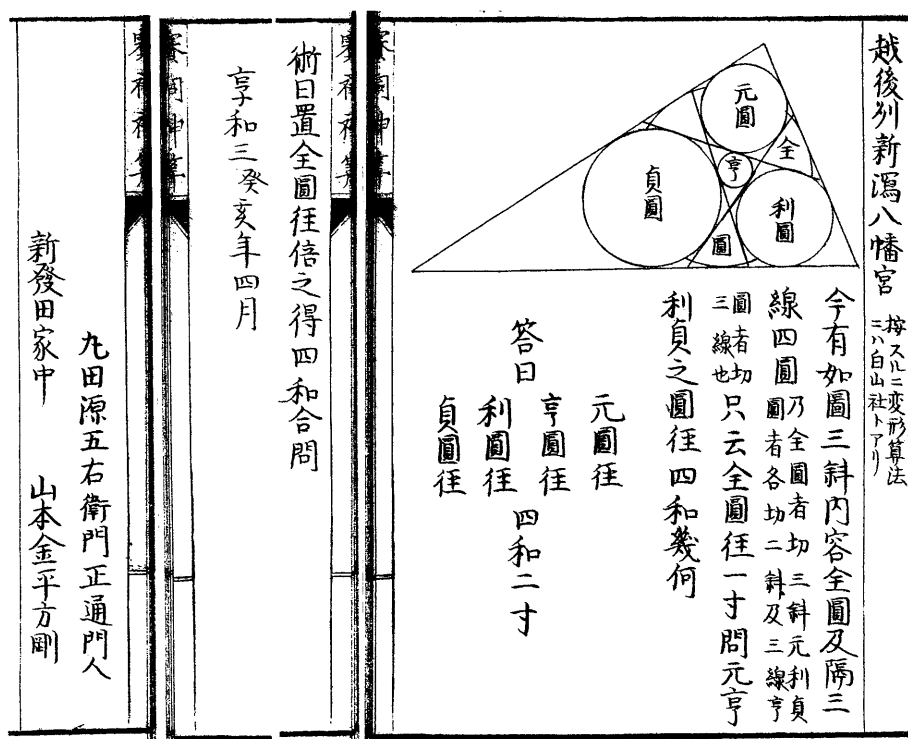 越後列新潟八幡宮 按スルニ変形算法
ニハ白山社トアリ
元圓
亨
全
貞圓
利圓
圓
今有如圖三斜内容全圓及隔三
線四圓乃全圓者切三斜元利貞
圓者各切二斜及三線亨
圓者切
三線也只云全圓径一寸問元亨
利貞之圓径四和幾何
答曰
元圓径
亨圓径
利圓径
貞圓径
四和二寸
賽祠神算
術曰置全圓径倍之得四和合問
享和三癸亥年四月
賽祠神算
九田源五右衛門正通門人
新發田家中 山本金平方剛